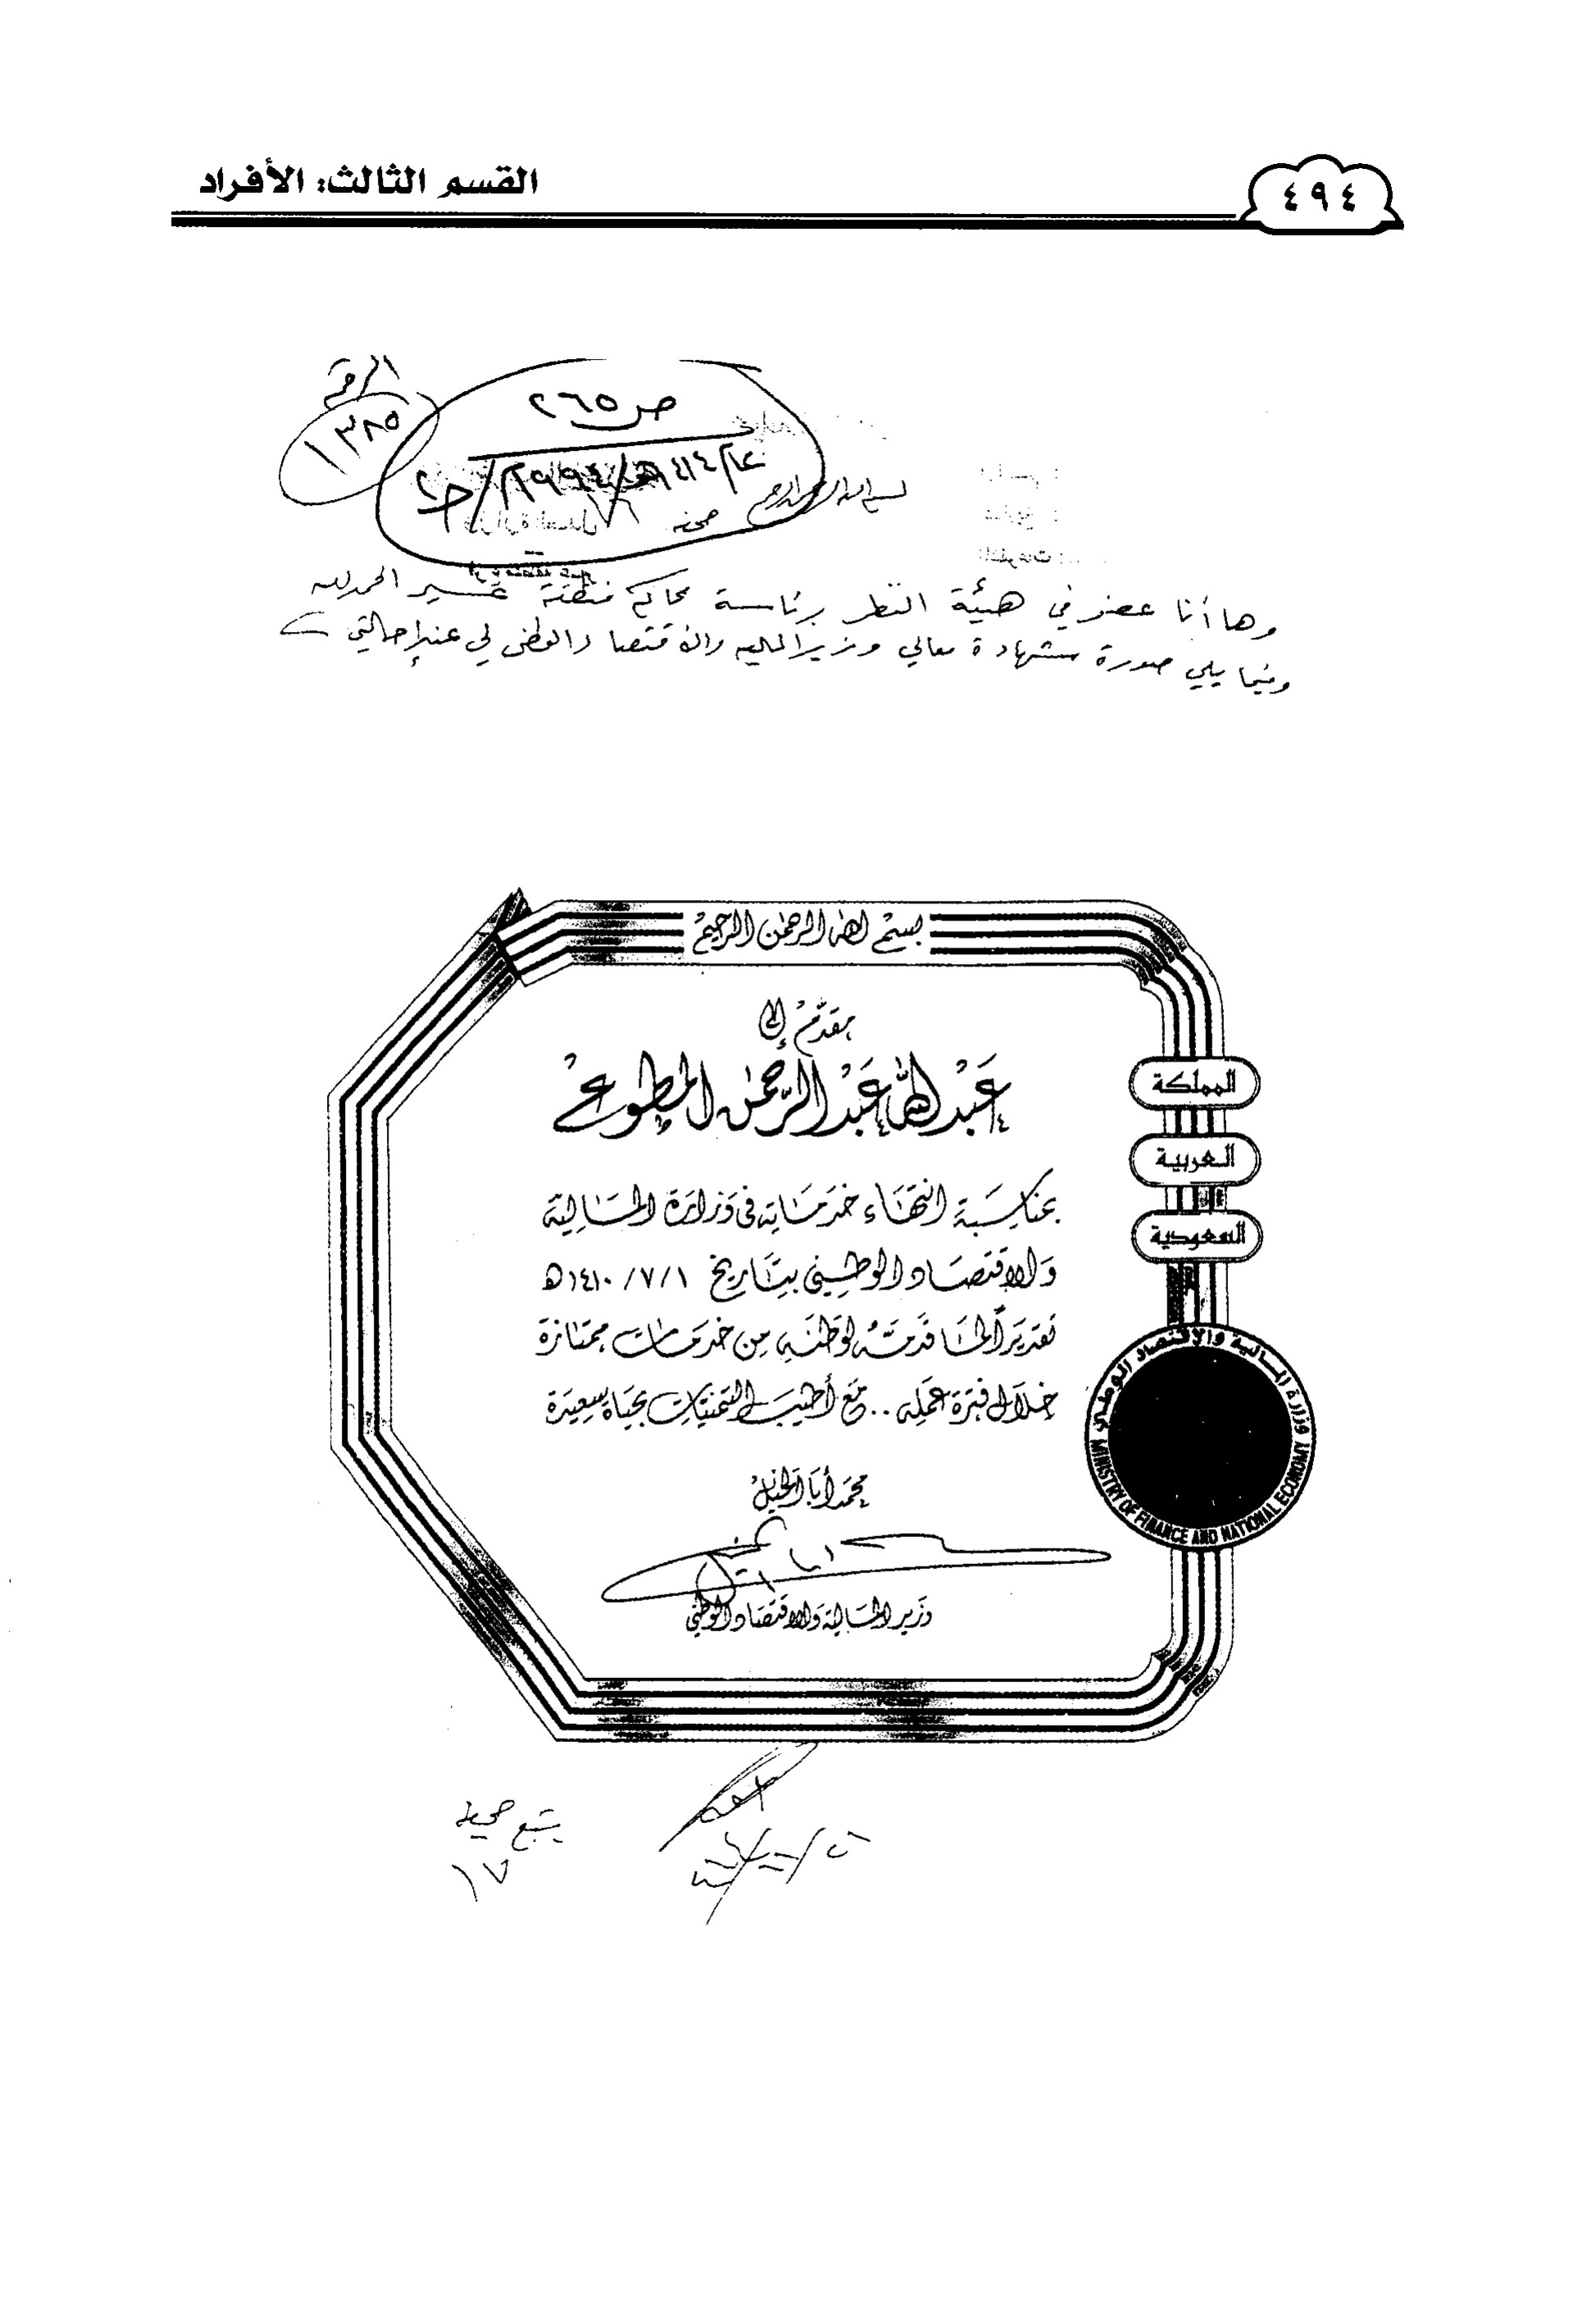 ٤٩٤
القسم الثالث: الأفراد
الرقم
١٣٨٥
ص ٢٦٥
عام ١٤١٤هـ/١٩٩٤م/ج٢
بسم الله الرحمن الرحيم
صحيفة ١٦
وها أنا عضو في هيئة النظر برئاسة محاكم منطقة عسير الحمد لله
وفيما يلي صورة شهادة معالي وزير الماليه والاقتصاد الوطني لي عند إحالتي
بسم الله الرحمن الرحيم
مقدم إلى
عبد الله عبد الرحمن المطوع
بمناسبة انتهاء خدماته في وزارة المالية
والاقتصاد الوطني بتاريخ ١/٧/١٤١٠هـ
تقديراً لما قدمه لوطنه من خدمات ممتازة
خلال فترة عمله .. مع أطيب التمنيات بحياة سعيدة
محمد أبا الخيل
وزير المالية والاقتصاد الوطني
المملكة
العربية
السعودية
وزارة المالية والاقتصاد الوطني
MINISTRY OF FINANCE AND NATIONAL ECONOMY
يتبع صحيفة
١٧